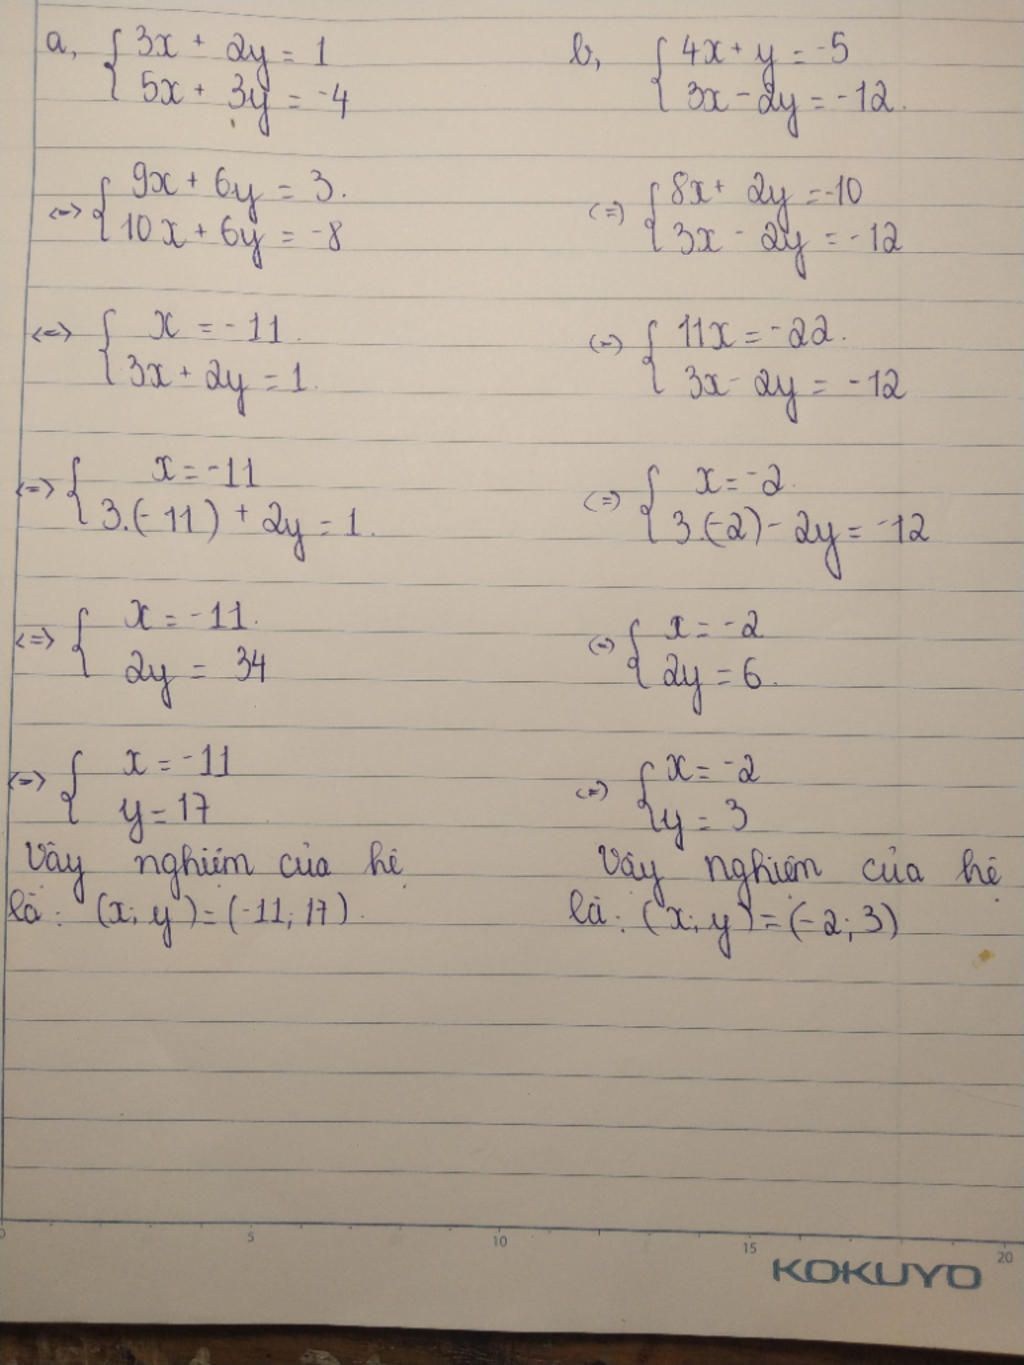 a, { 3x + 2y = 1
5x + 3y = -4
<=> { 9x + 6y = 3.
10x + 6y = -8
<=> { x = -11.
3x + 2y = 1.
<=> { x = -11
3.(-11) + 2y = 1.
<=> { x = -11.
2y = 34
<=> { x = -11
y = 17
Vậy nghiệm của hệ
là: (x; y) = (-11; 17).
b, { 4x + y = -5
3x - 2y = -12.
(=) { 8x + 2y = -10
3x - 2y = -12
(=) { 11x = -22.
3x - 2y = -12
(=) { x = -2.
3.(-2) - 2y = -12
(=) { x = -2
2y = 6.
(=) { x = -2
y = 3
Vậy nghiệm của hệ
là: (x; y) = (-2; 3)
0 5 10 15 20
KOKUYO